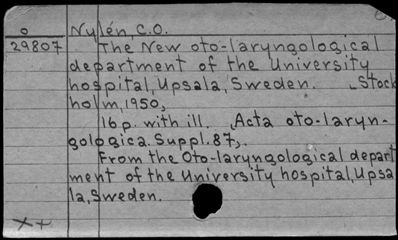 o
29807
Nylén, C.O.
The New oto-laryngological
department of the University
hospital, Upsala, Sweden. Stock
holm, 1950,
16 p. with ill. Acta oto-laryn-
gologica. Suppl. 87,.
From the Oto-laryngological depart
ment of the University hospital, Upsa
la, Sweden.
x+